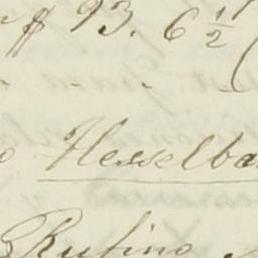 $ 93. 6 1/2
Hesselba
Rufino